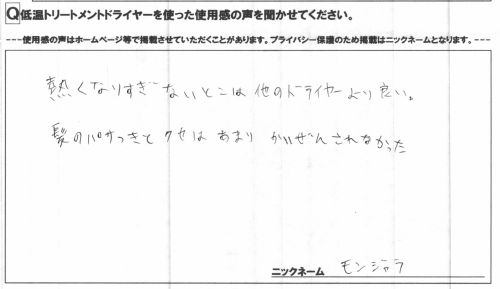 Q低温トリートメントドライヤーを使った使用感の声を聞かせてください。
---使用感の声はホームページ等で掲載させていただくことがあります。プライバシー保護のため掲載はニックネームとなります。----
熱くなりすぎないとこは他のドライヤーより良い。
髪のパサつきとクセはあまりかいぜんされなかった
ニックネーム モンジャラ